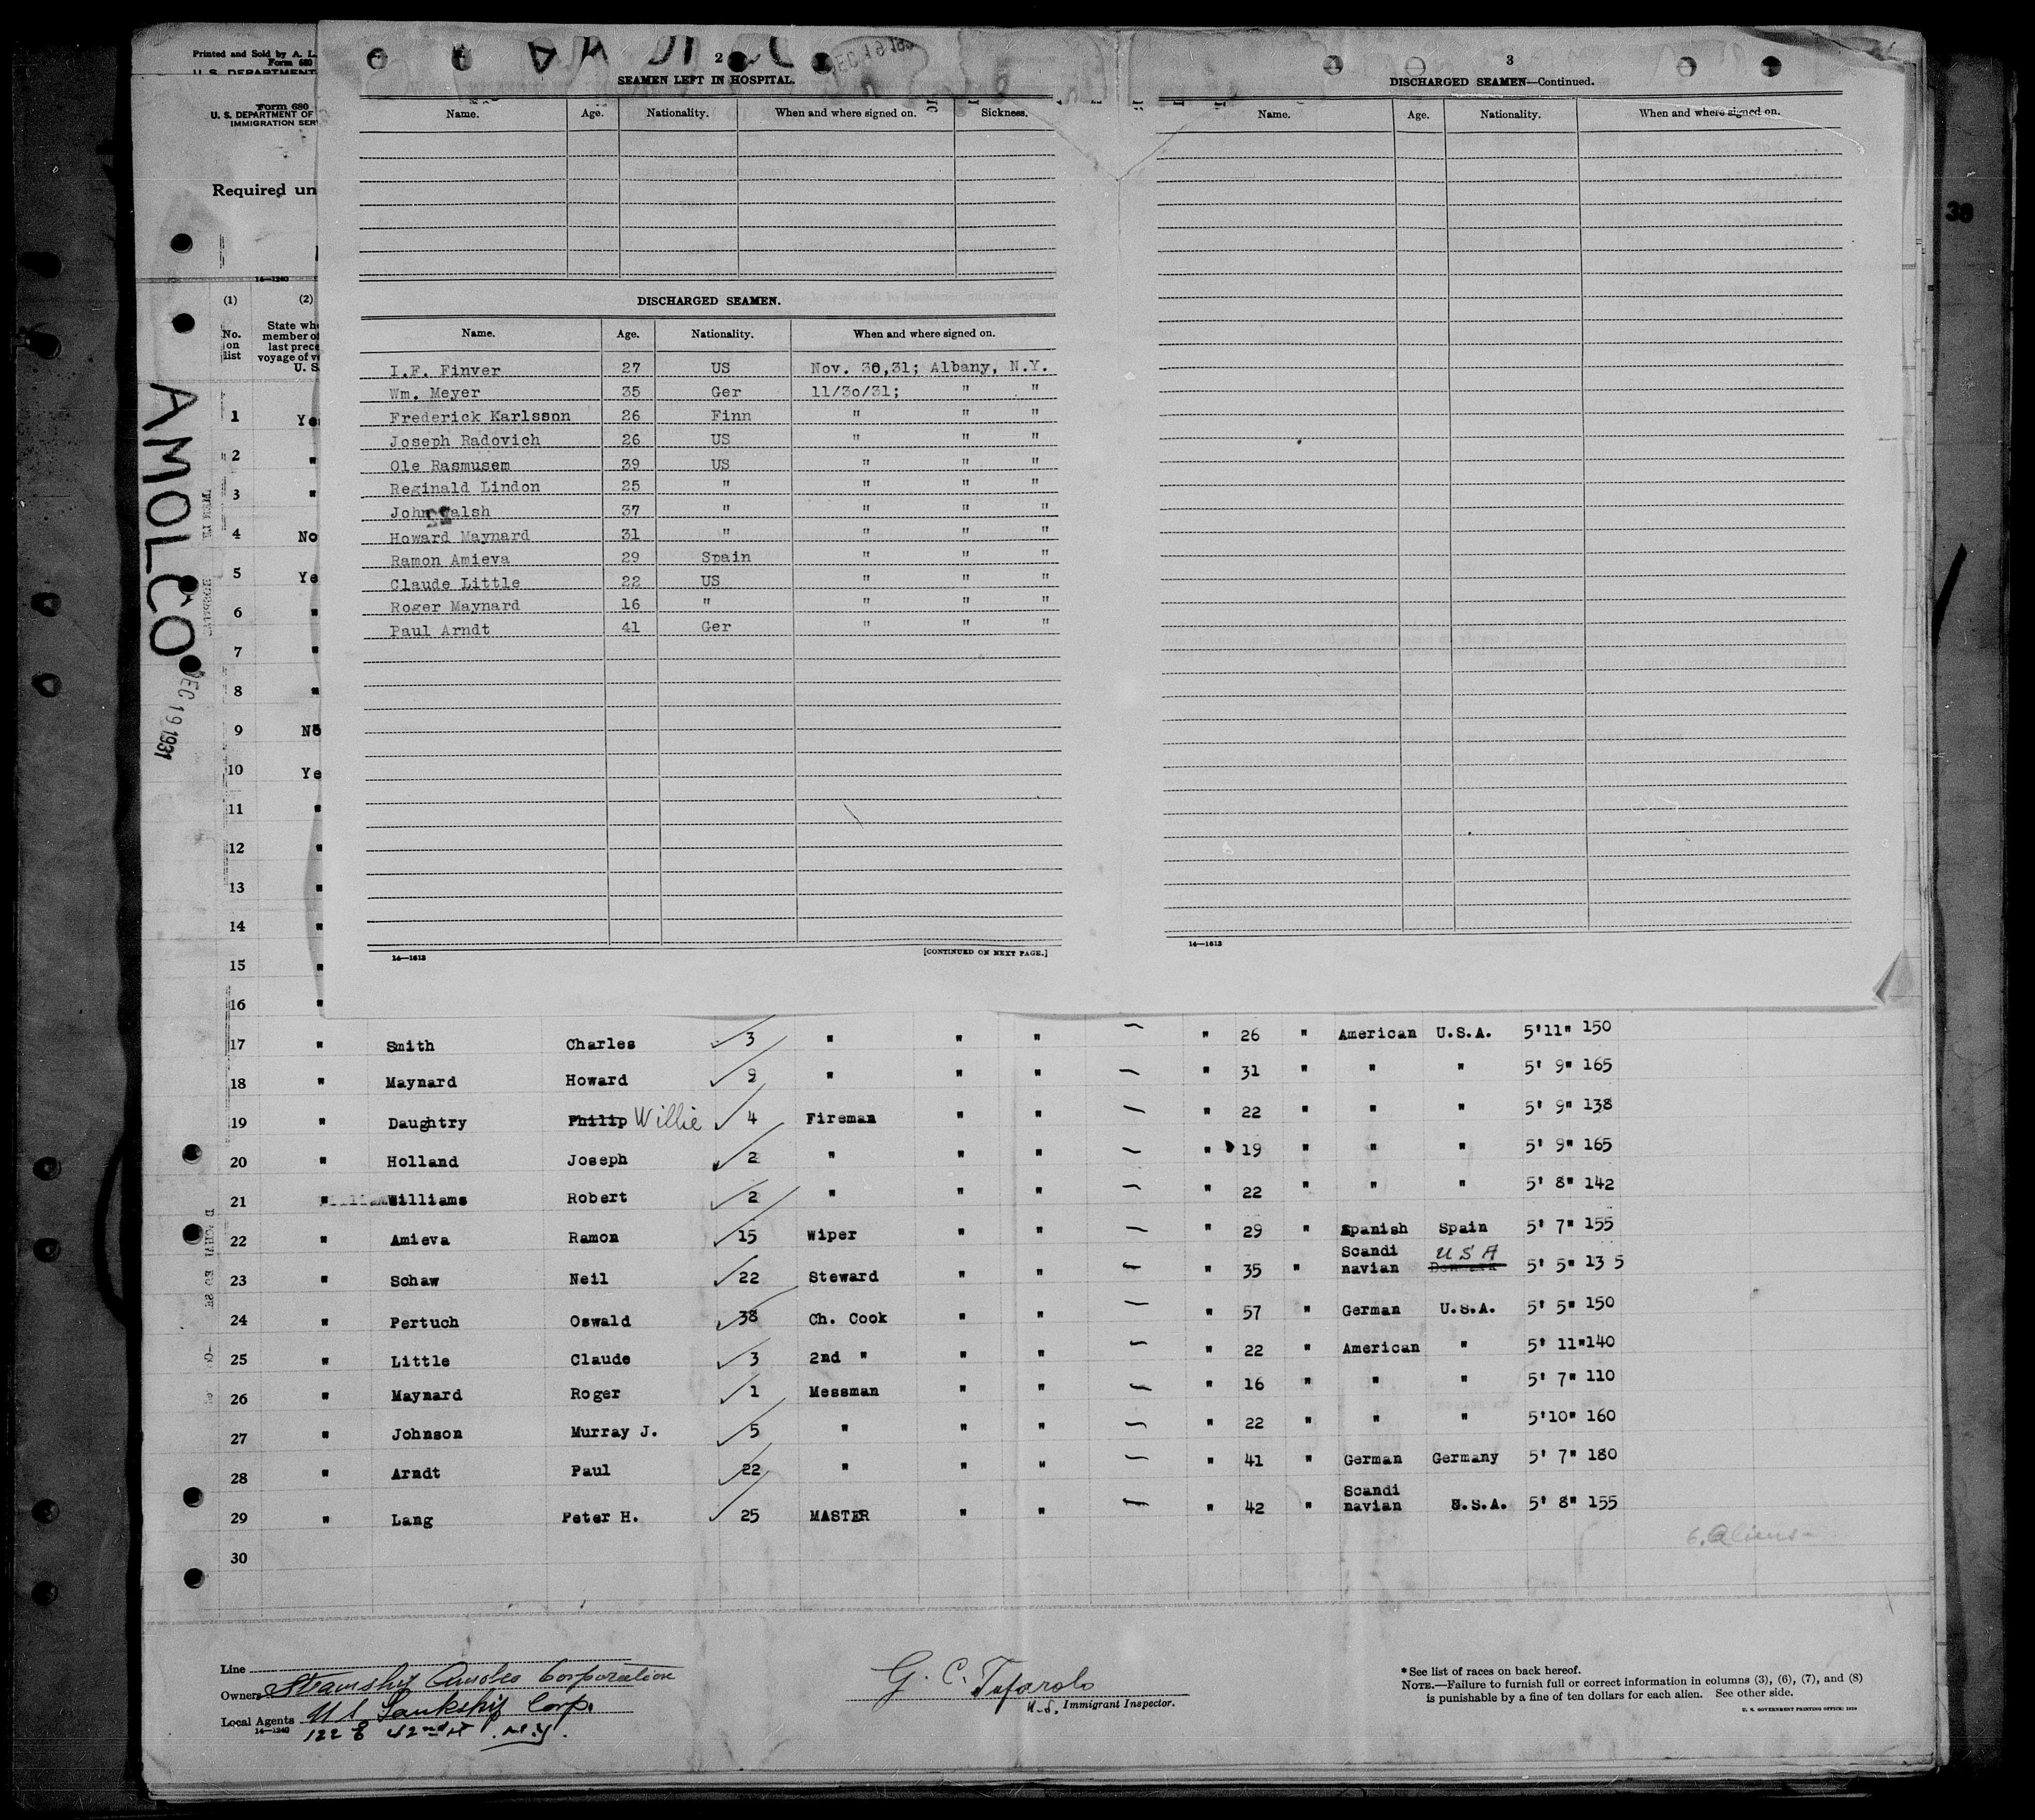 Printed and Sold by A. L.
Form 680
U. S. DEPARTMENT
Form 680
U. S. DEPARTMENT OF
IMMIGRATION SER
Required un
14—1240
(1) (2)
No. on list
State whe
member of
last prece
voyage of v
U. S.
AMOLCO
DEC 19 1931
38
2
SEAMEN LEFT IN HOSPITAL.
Name. Age. Nationality. When and where signed on. Sickness.
DISCHARGED SEAMEN.
Name. Age. Nationality. When and where signed on.
I.F. Finver 27 US Nov. 30,31; Albany, N.Y.
Wm. Meyer 35 Ger 11/30/31; " "
Frederick Karlsson 26 Finn " " "
Joseph Radovich 26 US " " "
Ole Rasmusem 39 US " " "
Reginald Lindon 25 " " " "
John Walsh 37 " " " "
Howard Maynard 31 " " " "
Ramon Amieva 29 Spain " " "
Claude Little 22 US " " "
Roger Maynard 16 " " " "
Paul Arndt 41 Ger " " "
14—1613 [CONTINUED ON NEXT PAGE.]
3
DISCHARGED SEAMEN—Continued.
Name. Age. Nationality. When and where signed on.
14—1613
1 Yes
2 "
3 "
4 No
5 Ye
6 "
7 "
8 "
9 No
10 Ye
11 "
12 "
13 "
14 "
15 "
16 "
17 " Smith Charles 3 " " " — " 26 " American U.S.A. 5'11" 150
18 " Maynard Howard 9 " " " — " 31 " " " 5' 9" 165
19 " Daughtry Philip Willie 4 Fireman " " — " 22 " " " 5' 9" 138
20 " Holland Joseph 2 " " " — " 19 " " " 5' 9" 165
21 " Williams Robert 2 " " " — " 22 " " " 5' 8" 142
22 " Amieva Ramon 15 Wiper " " — " 29 " Spanish Spain 5' 7" 155
23 " Schaw Neil 22 Steward " " — " 35 " Scandi navian Denmark U S A 5' 5" 13 5
24 " Pertuch Oswald 38 Ch. Cook " " — " 57 " German U.S.A. 5' 5" 150
25 " Little Claude 3 2nd " " " — " 22 " American " 5' 11" 140
26 " Maynard Roger 1 Messman " " — " 16 " " " 5' 7" 110
27 " Johnson Murray J. 5 " " " — " 22 " " " 5'10" 160
28 " Arndt Paul 22 " " " — " 41 " German Germany 5' 7" 180
29 " Lang Peter H. 25 MASTER " " — " 42 " Scandi navian U.S.A. 5' 8" 155
30
6. Aliens-
Line
Owners Steamship Amolco Corporation
Local Agents U S Tankship Corp.
14—1240
122 E 42nd St N.Y.
G. C. Tofarolo
U.S. Immigrant Inspector.
* See list of races on back hereof.
NOTE.—Failure to furnish full or correct information in columns (3), (6), (7), and (8)
is punishable by a fine of ten dollars for each alien. See other side.
U. S. GOVERNMENT PRINTING OFFICE: 1929